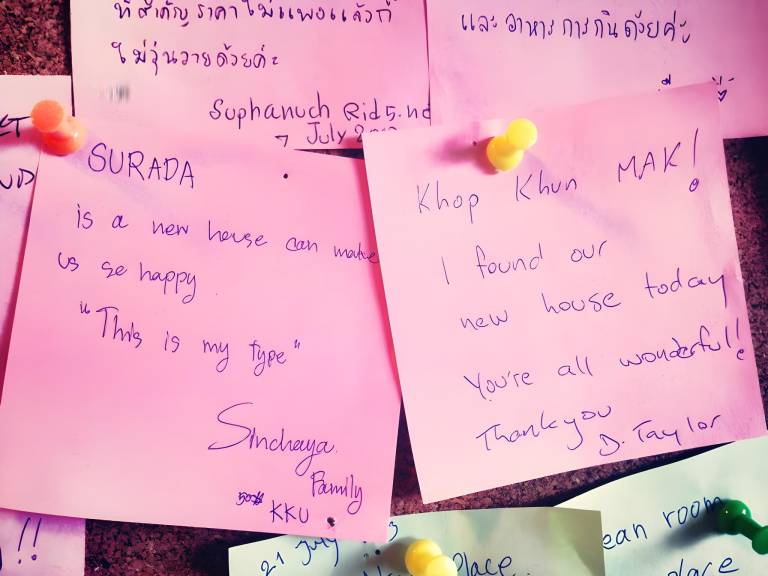 ที่สำคัญ ราคาไม่แพงแล้วก็
ไม่วุ่นวายด้วยค่ะ
Suphanuch
7 July
และ อาหารการกินด้วยค่ะ
SURADA
is a new house can make
us so happy
"This is my type"
Sinchaya
Family
KKU
Khop Khun MAK!
I found our
new house today
You're all wonderful!!
Thankyou
D. Taylor
!!
21 July
Place.
ean room
place